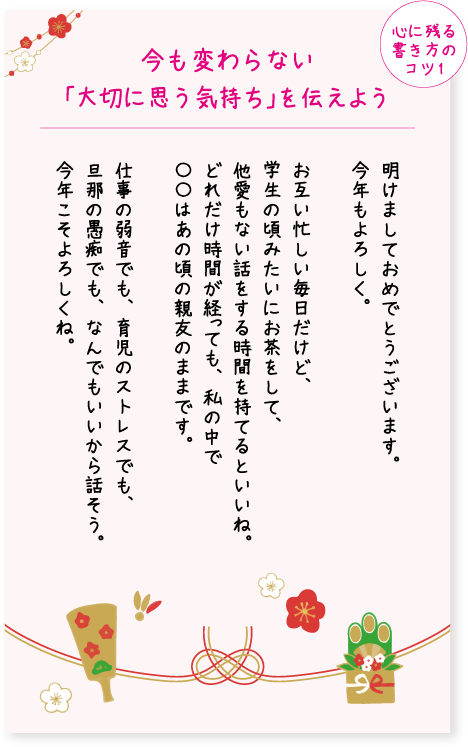 心に残る
書き方の
コツ1
今も変わらない
「大切に思う気持ち」を伝えよう
明けましておめでとうございます。
今年もよろしく。
お互い忙しい毎日だけど、
学生の頃みたいにお茶をして、
他愛もない話をする時間を持てるといいね。
どれだけ時間が経っても、私の中で
〇〇はあの頃の親友のままです。
仕事の弱音でも、育児のストレスでも、
旦那の愚痴でも、なんでもいいから話そう。
今年こそよろしくね。